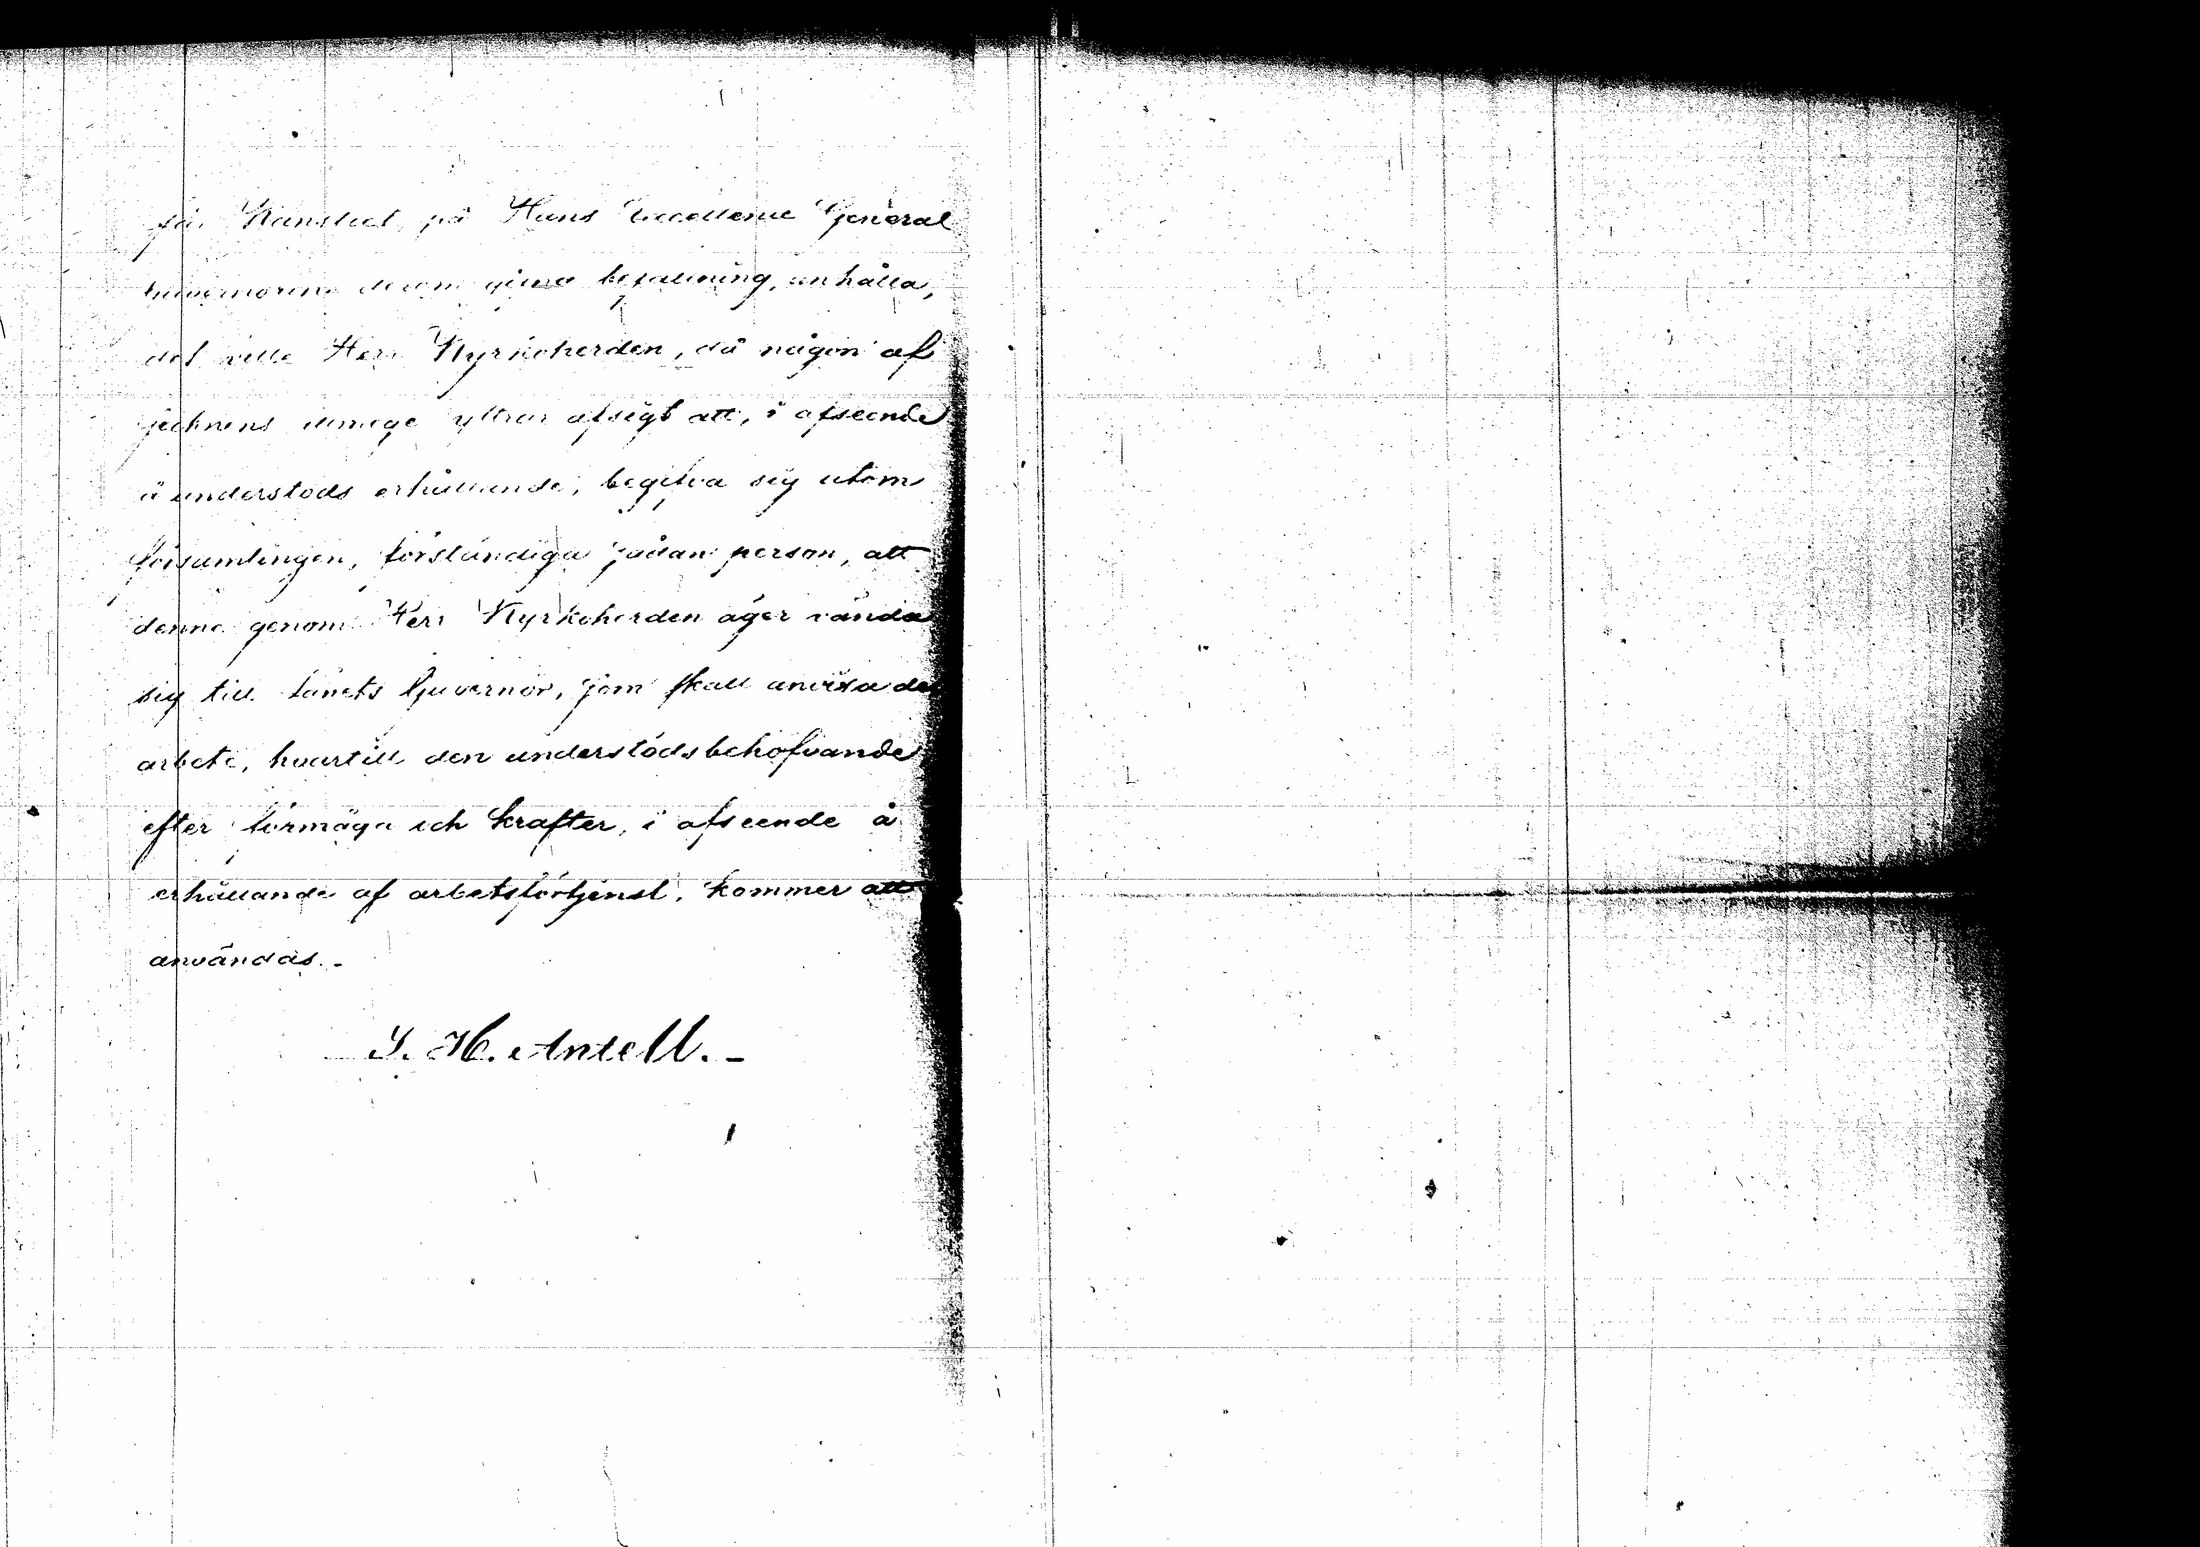 får Kansliet på Hans Excellence General
Guvernörens derom gifna befallning, anhålla,
det ville Herr Kyrkoherden, då någon af
socknens inwånare yttrar afsigt att, i afseende
å understöds erhållande, begifva sig utom
församlingen, förständiga sådan person, att
denne genom Herr Kyrkoherden äger vända
sig till länets Guvernör, som skall anvisa det
arbete, hvartill den understödsbehöfvande
efter förmåga och krafter, i afseende å
erhållande af arbetsförtjenst, kommer att
användas. -
S. H. Antell. -